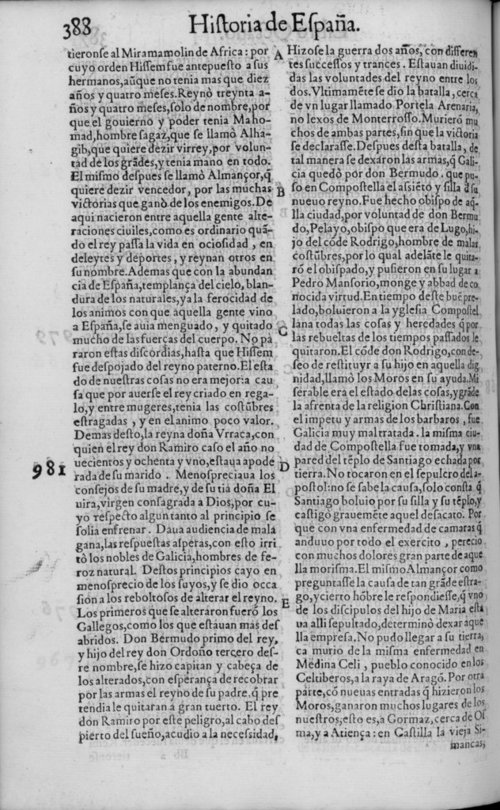 388
Historia de España.
tieronse al Miramamolin de Africa : por
cuyo orden Hissem fue antepuesto a sus
hermanos, aũque no tenia mas que diez
años y quatro meses. Reynò treynta a-
ños y quatro meses, solo de nombre, por
que el gouierno y poder tenia Maho-
mad, hombre sagaz, que se llamò Alha-
gib, que quiere dezir virrey, por volun-
tad de los grãdes, y tenia mano en todo.
El mismo despues se llamò Almançor, q̃
quiere dezir vencedor, por las muchas
victorias que ganò de los enemigos. De
aqui nacieron entre aquella gente alte-
raciones ciuiles, como es ordinario quã-
do el rey passa la vida en ociosidad, en
deleytes y deportes, y reynan otros en
su nombre. Ademas que con la abundan
cia de España, templança del cielo, blan-
dura de los naturales, ya la ferocidad de
los animos con que aquella gente vino
a España, se auia menguado, y quitado
mucho de las fuerças del cuerpo. No pa
raron estas discordias, hasta que Hissem
fue despojado del reyno paterno. El esta
do de nuestras cosas no era mejor: a cau
sa que por auerse el rey criado en rega-
lo, y entre mugeres, tenia las costũbres
estragadas, y en el animo poco valor.
Demas desto, la reyna doña Vrraca, con
quien el rey don Ramiro caso el año no
981
uecientos y ochenta y vno, estaua apode
rada de su marido. Menospreciaua los
consejos de su madre, y de su tia doña El
uira, virgen consagrada a Dios, por cu-
yo respecto algun tanto al principio se
solia enfrenar. Daua audiencia de mala
gana, las respuestas asperas, con esto irri
tò los nobles de Galicia, hombres de fe-
roz natural. Destos principios cayo en
menosprecio de los suyos, y se dio occa
sión a los reboltosos de alterar el reyno.
Los primeros que se alteraron fuerõ los
Gallegos, como los que estauan mas des
abridos. Don Bermudo primo del rey,
y hijo del rey don Ordoño tercero des-
te nombre, se hizo capitan y cabeça de
los alterados, con esperãça de recobrar
por las armas el reyno de su padre. q̃ pre
tendia le quitaran a gran tuerto. El rey
don Ramiro por este peligro, al cabo des
pierto del sueño, acudio a la necessidad,
A
B
C
D
E
Hizose la guerra dos años, con differen
tes successos y trances. Estauan diuidi-
das las voluntades del reyno entre los
dos. Vltimamẽte se dio la batalla, cerca
de vn lugar llamado Portela Arenaria,
no lexos de Monterrosso. Murierõ mu
chos de ambas partes, sin que la victoria
se declarasse. Despues desta batalla, de
tal manera se dexaron las armas, q̃ Gali-
cia quedò por don Bermudo. que pu-
so en Compostella el assiẽto y silla d̃ su
nueuo reyno. Fue hecho obispo de aq̃-
lla ciudad, por voluntad de don Bermu
do, Pelayo, obispo que era de Lugo, hi-
jo del cõde Rodrigo, hombre de malas
costũbres, por lo qual adelãte le quita-
rõ el obispado, y pusieron en su lugar a
Pedro Mansorio, monge y abbad de co
nocida virtud. En tiempo deste buẽ pre-
lado, boluieron a la yglesia Compostel
lana todas las cosas y heredades q̃ por
las rebueltas de los tiempos passados le
quitaron. El cõde don Rodrigo, con de-
seo de restituyr a su hijo en aquella dig
nidad, llamò los Moros en su ayuda. Mi
serable era el estado de las cosas, y grãde
la afrenta de la religion Christiana. Con
el impetu y armas de los barbaros, fue
Galicia muy maltratada. la misma ciu-
dad de Compostella fue tomada, y vna
pared del tẽplo de Santiago echada por
tierra. No tocaron en el sepulcro del a-
postol: no se sabe la causa, solo consta q̃
Santiago boluio por su silla y su tẽplo, y
castigò grauemẽte aquel desacato. Por
que con vna enfermedad de camaras q̃
anduuo por todo el exercito, perecio
con muchos dolores gran parte de aque
lla morisma. El mismo Almançor como
preguntasse la causa de tan grãde estra-
go, y cierto hõbre le respondiesse, q̃ vno
de los discipulos del hijo de Maria esta
ua alli sepultado, determinò dexar aque
lla empresa. No pudo llegar a su tierra,
ca murio de la misma enfermedad en
Medina Celi, pueblo conocido en los
Celtiberos, a la raya de Aragõ. Por otra
parte, cõ nueuas entradas q̃ hizieron los
Moros, ganaron muchos lugares de los
nuestros, esto es, a Gormaz, cerca de Os
ma, y a Atiença: en Castilla la vieja Si-
mancas,